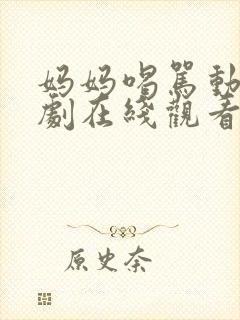 妈妈喝骂動
劇在綫觀看
原史奈